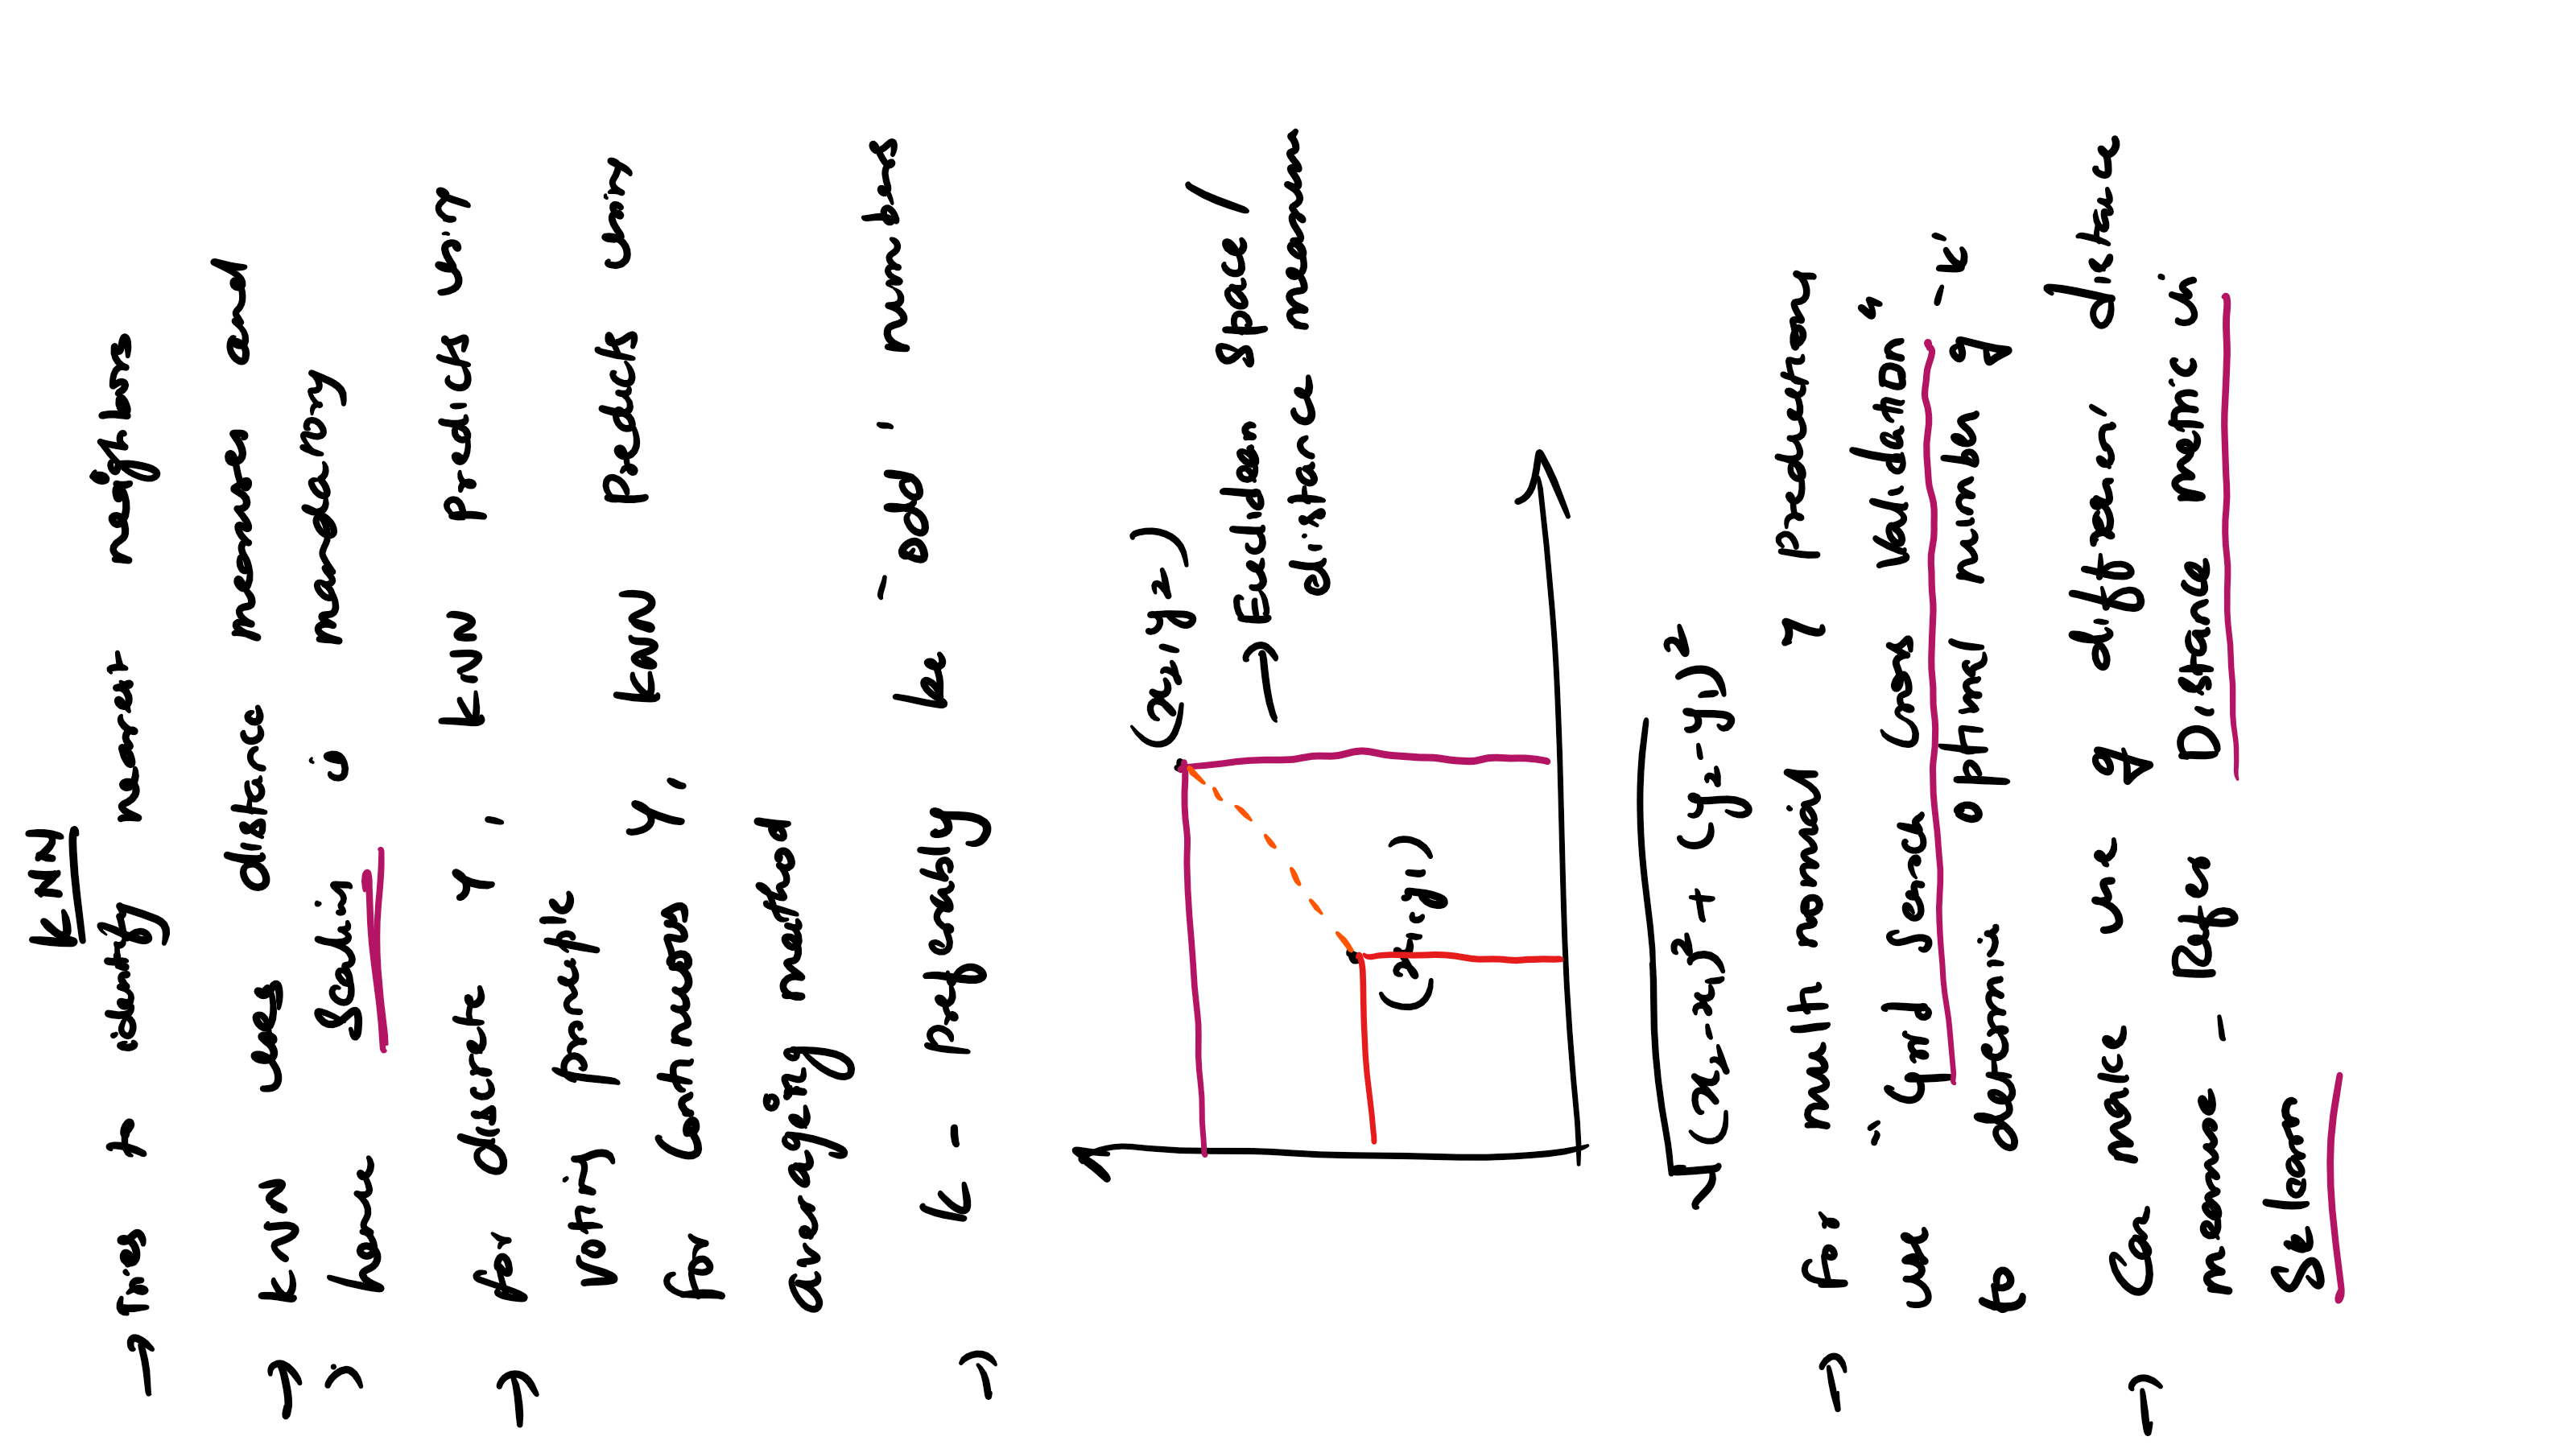 KNN
→ Tries to identify nearest neighbors
→ KNN uses distance measures and
hence Scaling is mandatory
→ for discrete Y, KNN predicts using
voting principle
for Continuous Y, KNN Predicts using
averaging method
→ K - preferably be - odd' numbers
(x2, y2)
→ Euclidean Space /
distance measures
(x1, y1)
√(x2-x1)² + (y2-y1)²
→ for multi nomial Y predictions
use "Grid Search Cross Validation"
to determine optimal number of -K'
→ Can make use of different distance
measure - Refer Distance metric in
Sklearn